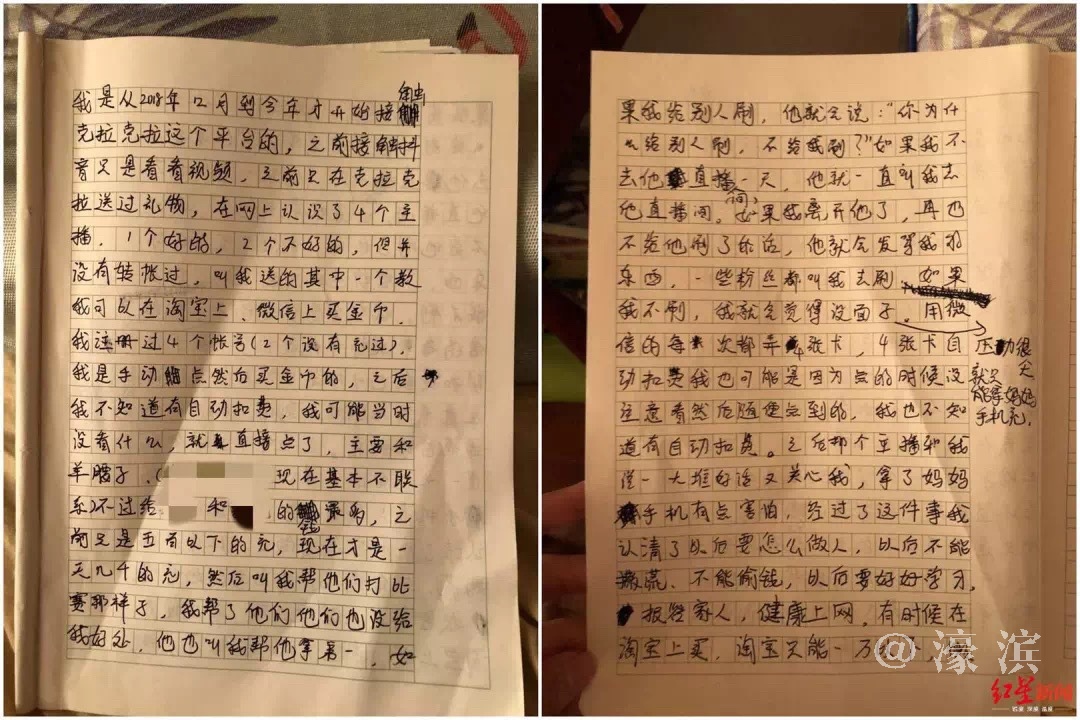 我是从2018年12月到今年才开始接触
克拉克拉这个平台的，之前接触抖
音只是看看视频，之前只在克拉克
拉送过礼物，在网上认识了4个主
播，1个好的，2个不好的，但并
没有转帐过，叫我送的其中一个教
我可以在淘宝上、微信上买金币，
我注册过4个帐号(2个没有充过)，
我是手动点然后买金币的，之后
我不知道有自动扣费，我可能当时
没看什么，就直接点了，主要和
羊腰子，(现在基本不联
系)不过给和的钱最多，之
前只是五百以下的充，现在才是一
天几千的充，然后叫我帮他们打比
赛那样子，我帮了他们他们也没给
我好处，他也叫我帮他拿第一，如
果我给别人刷，他就会说：“你为什
么给别人刷，不给我刷？”如果我不
去他直播一天，他就一直叫我去
他直播间，如果我离开他了，再也
不给他刷了的话，他就会发骂我的
东西，一些粉丝都叫我去刷，如果
我不刷，我就会觉得没面子。用微
信的每次都弄4张卡，4张卡自
动扣费我也可能是因为点的时候没
注意看然后随便点到的，我也不知
道有自动扣费。之后那个主播和我
说一大堆好话又关心我，拿了妈妈
手机有点害怕，经过了这件事我
认清了以后要怎么做人，以后不能
撒谎、不能偷钱，以后要好好学习，
报答家人，健康上网。有时候在
淘宝上买，淘宝只能一万
压力很大
就只
能拿妈妈
手机充，
@濠滨
红星新闻